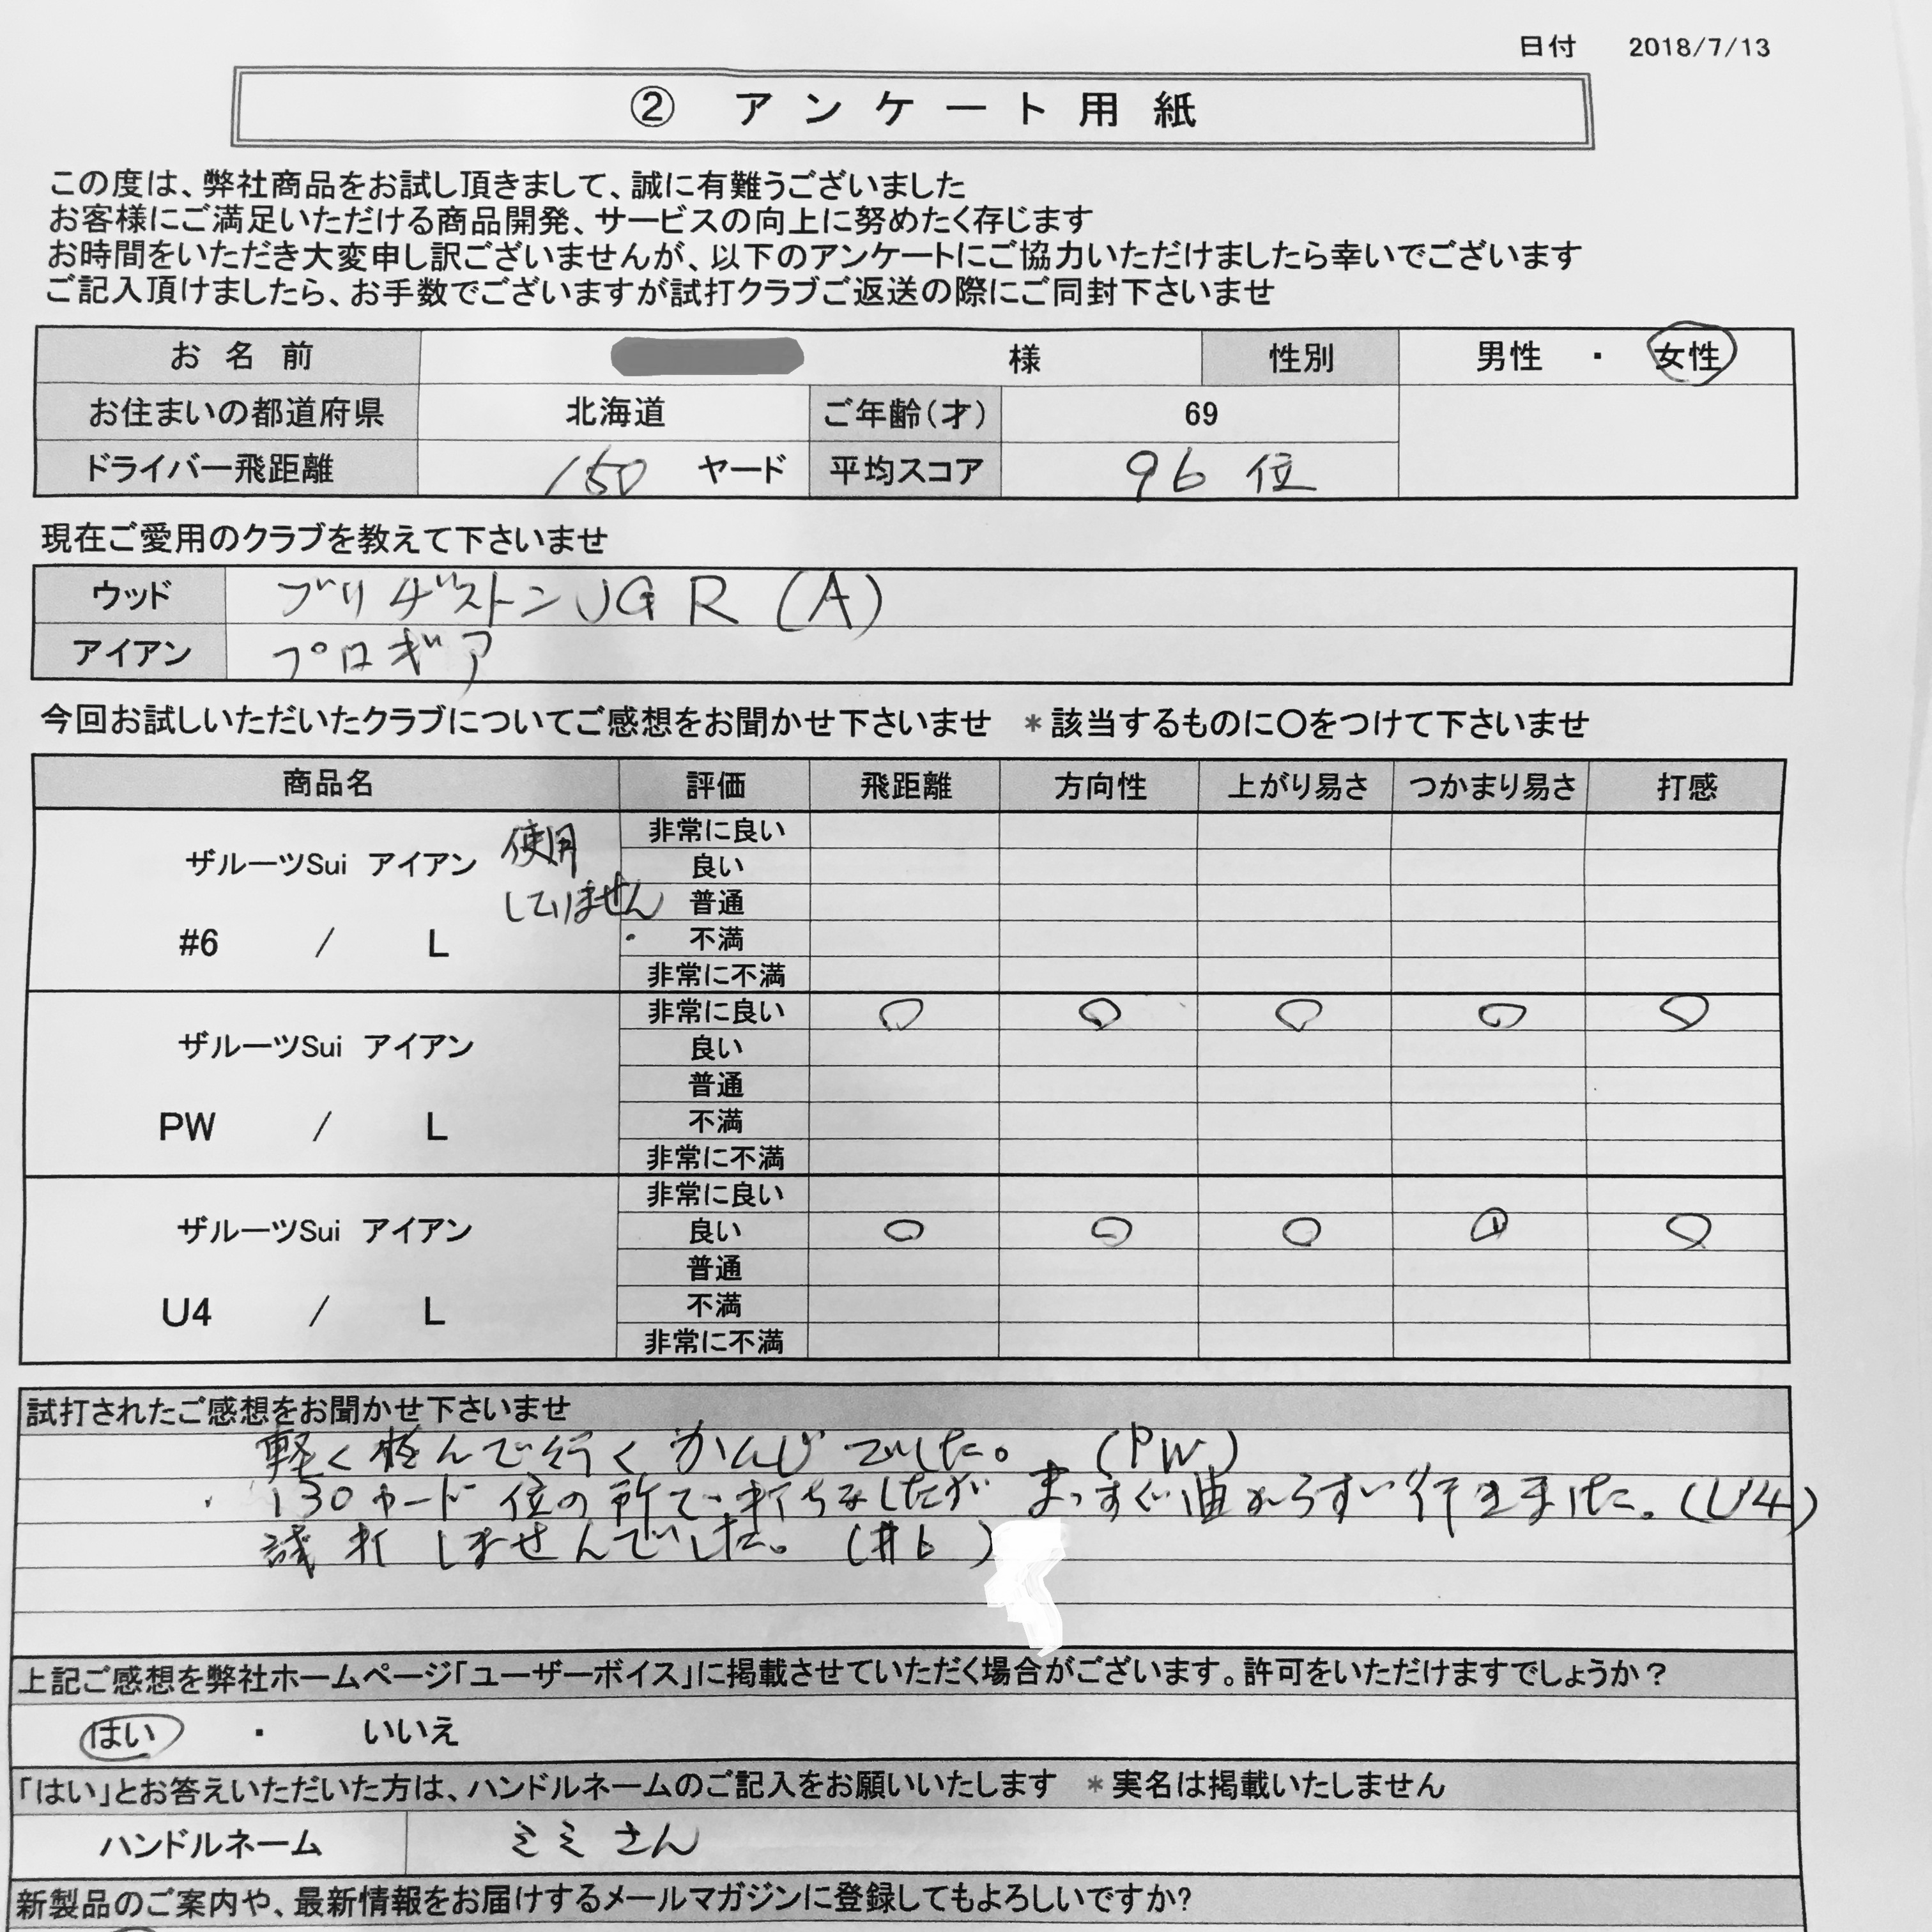 日付 2018/7/13
② アンケート用紙
この度は、弊社商品をお試し頂きまして、誠に有難うございました
お客様にご満足いただける商品開発、サービスの向上に努めたく存じます
お時間をいただき大変申し訳ございませんが、以下のアンケートにご協力いただけましたら幸いでございます
ご記入頂けましたら、お手数でございますが試打クラブご返送の際にご同封下さいませ
お名前 様 性別 男性 ・ 女性
お住まいの都道府県 北海道 ご年齢(才) 69
ドライバー飛距離 150 ヤード 平均スコア 96 位
現在ご愛用のクラブを教えて下さいませ
ウッド ブリヂストンJGR (A)
アイアン プロギア
今回お試しいただいたクラブについてご感想をお聞かせ下さいませ *該当するものに〇をつけて下さいませ
商品名 評価 飛距離 方向性 上がり易さ つかまり易さ 打感
ザルーツSui アイアン 使用していません
#6 / L
非常に良い
良い
普通
不満
非常に不満
ザルーツSui アイアン
PW / L
非常に良い 〇 〇 〇 〇 〇
良い
普通
不満
非常に不満
ザルーツSui アイアン
U4 / L
非常に良い
良い 〇 〇 〇 〇 〇
普通
不満
非常に不満
試打されたご感想をお聞かせ下さいませ
軽く 行くかんじでした。 (PW)
130ヤード位の所で打ちましたが まっすぐ 行きました。(U4)
試打しませんでした。 (#6)
上記ご感想を弊社ホームページ「ユーザーボイス」に掲載させていただく場合がございます。許可をいただけますでしょうか?
はい ・ いいえ
「はい」とお答えいただいた方は、ハンドルネームのご記入をお願いいたします *実名は掲載いたしません
ハンドルネーム ミミさん
新製品のご案内や、最新情報をお届けするメールマガジンに登録してもよろしいですか?